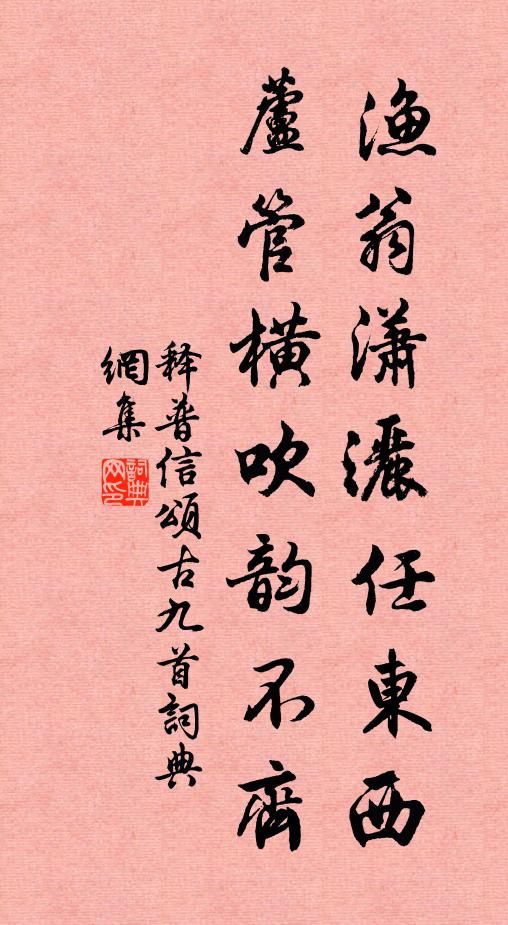 漁翁瀟灑任東西
蘆管橫吹韵不齊
释普信頌古九首詞典
網集
詞典网印